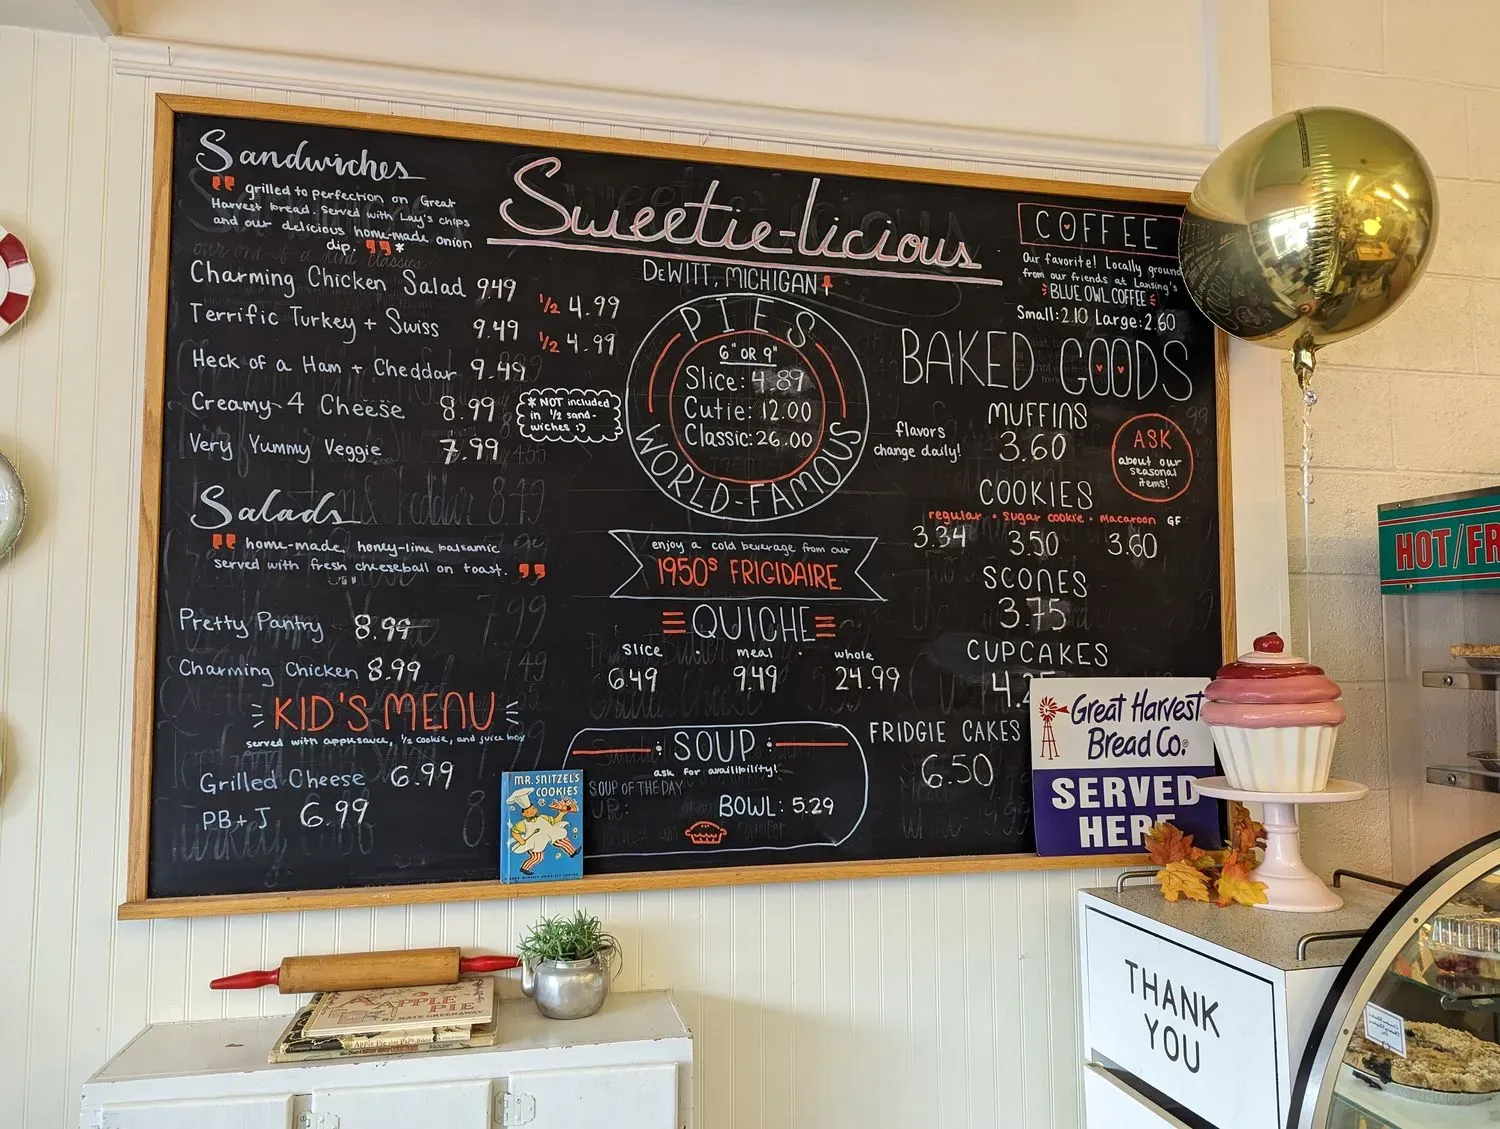 Sandwiches
"grilled to perfection on Great
Harvest bread. Served with Lay's chips
and our delicious home-made onion
dip."*
Charming Chicken Salad 9.49 ½ 4.99
Terrific Turkey + Swiss 9.49 ½ 4.99
Heck of a Ham + Cheddar 9.49
Creamy 4 Cheese 8.99
Very Yummy Veggie 7.99
* NOT included
in ½ sand-
wiches :)
Salads
"home-made honey-lime balsamic
served with fresh cheeseball on toast."
Pretty Pantry 8.99
Charming Chicken 8.99
KID'S MENU
served with applesauce, ½ cookie, and juice box
Grilled Cheese 6.99
PB+J 6.99
Sweetie-licious
DEWITT, MICHIGAN
PIES
6" OR 9"
Slice: 4.89
Cutie: 12.00
Classic: 26.00
WORLD-FAMOUS
enjoy a cold beverage from our
1950s FRIGIDAIRE
QUICHE
slice · meal · whole
6.49 9.49 24.99
SOUP
ask for availibility!
SOUP OF THE DAY
BOWL: 5.29
MR. SNITZEL'S
COOKIES
COFFEE
Our favorite! Locally ground
from our friends at Lansing's
BLUE OWL COFFEE
Small: 2.10 Large: 2.60
BAKED GOODS
flavors
change daily!
MUFFINS
3.60
ASK
about our
seasonal
items!
COOKIES
regular · sugar cookie · macaroon GF
3.34 3.50 3.60
SCONES
3.75
CUPCAKES
FRIDGIE CAKES
6.50
Great Harvest
Bread Co.®
SERVED
HERE
HOT/FR
THANK
YOU
APPLE
PIE
BY KATE GREENAWAY